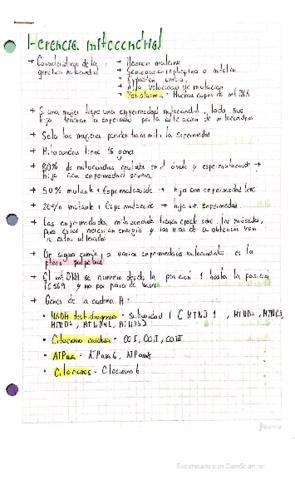 Herencia mitocondrial
→ Características de la genética mitocondrial
→ Herencia materna
→ Segregación replicativa o mitótica
→ Expresión umbral
→ Alta velocidad de mutación
→ : Muchas copias de mt DNA
→ Si una mujer tiene una enfermedad mitocondrial, todos sus hijos tendrán la enfermedad por la de mitocondrias
→ Solo las mujeres pueden transmitir la enfermedad
→ Mitocondria tiene genes
→ 80% de mitocondrias mutadas en el óvulo y espermatozoide → hijo con enfermedad severa
→ 50% mutante + Espermatozoide → hijo con enfermedad leve
→ 20% mutante + Espermatozoide → hijo sin enfermedad
→ Las enfermedades mitocondriales son los músculos, pues estos necesitan energía y las vías de su obtención van a estar alteradas
→ Un signo común a varias enfermedades mitocondriales es la ptosis palpebral
→ El mt DNA se numera desde la posición 1 hasta la posición 16569 y no por pares de bases
→ Genes de la cadena H:
• NADH deshidrogenasa - Subunidad 1 (MTND1), MTND2, MTND3, MTND4, MTND4L, MTND5)
• Citocromo oxidasa - COI, COII, COIII
• ATPasa - ATPasa 6, ATPasa 8
• Citocromos - Citocromo b
Escaneado con CamScanner